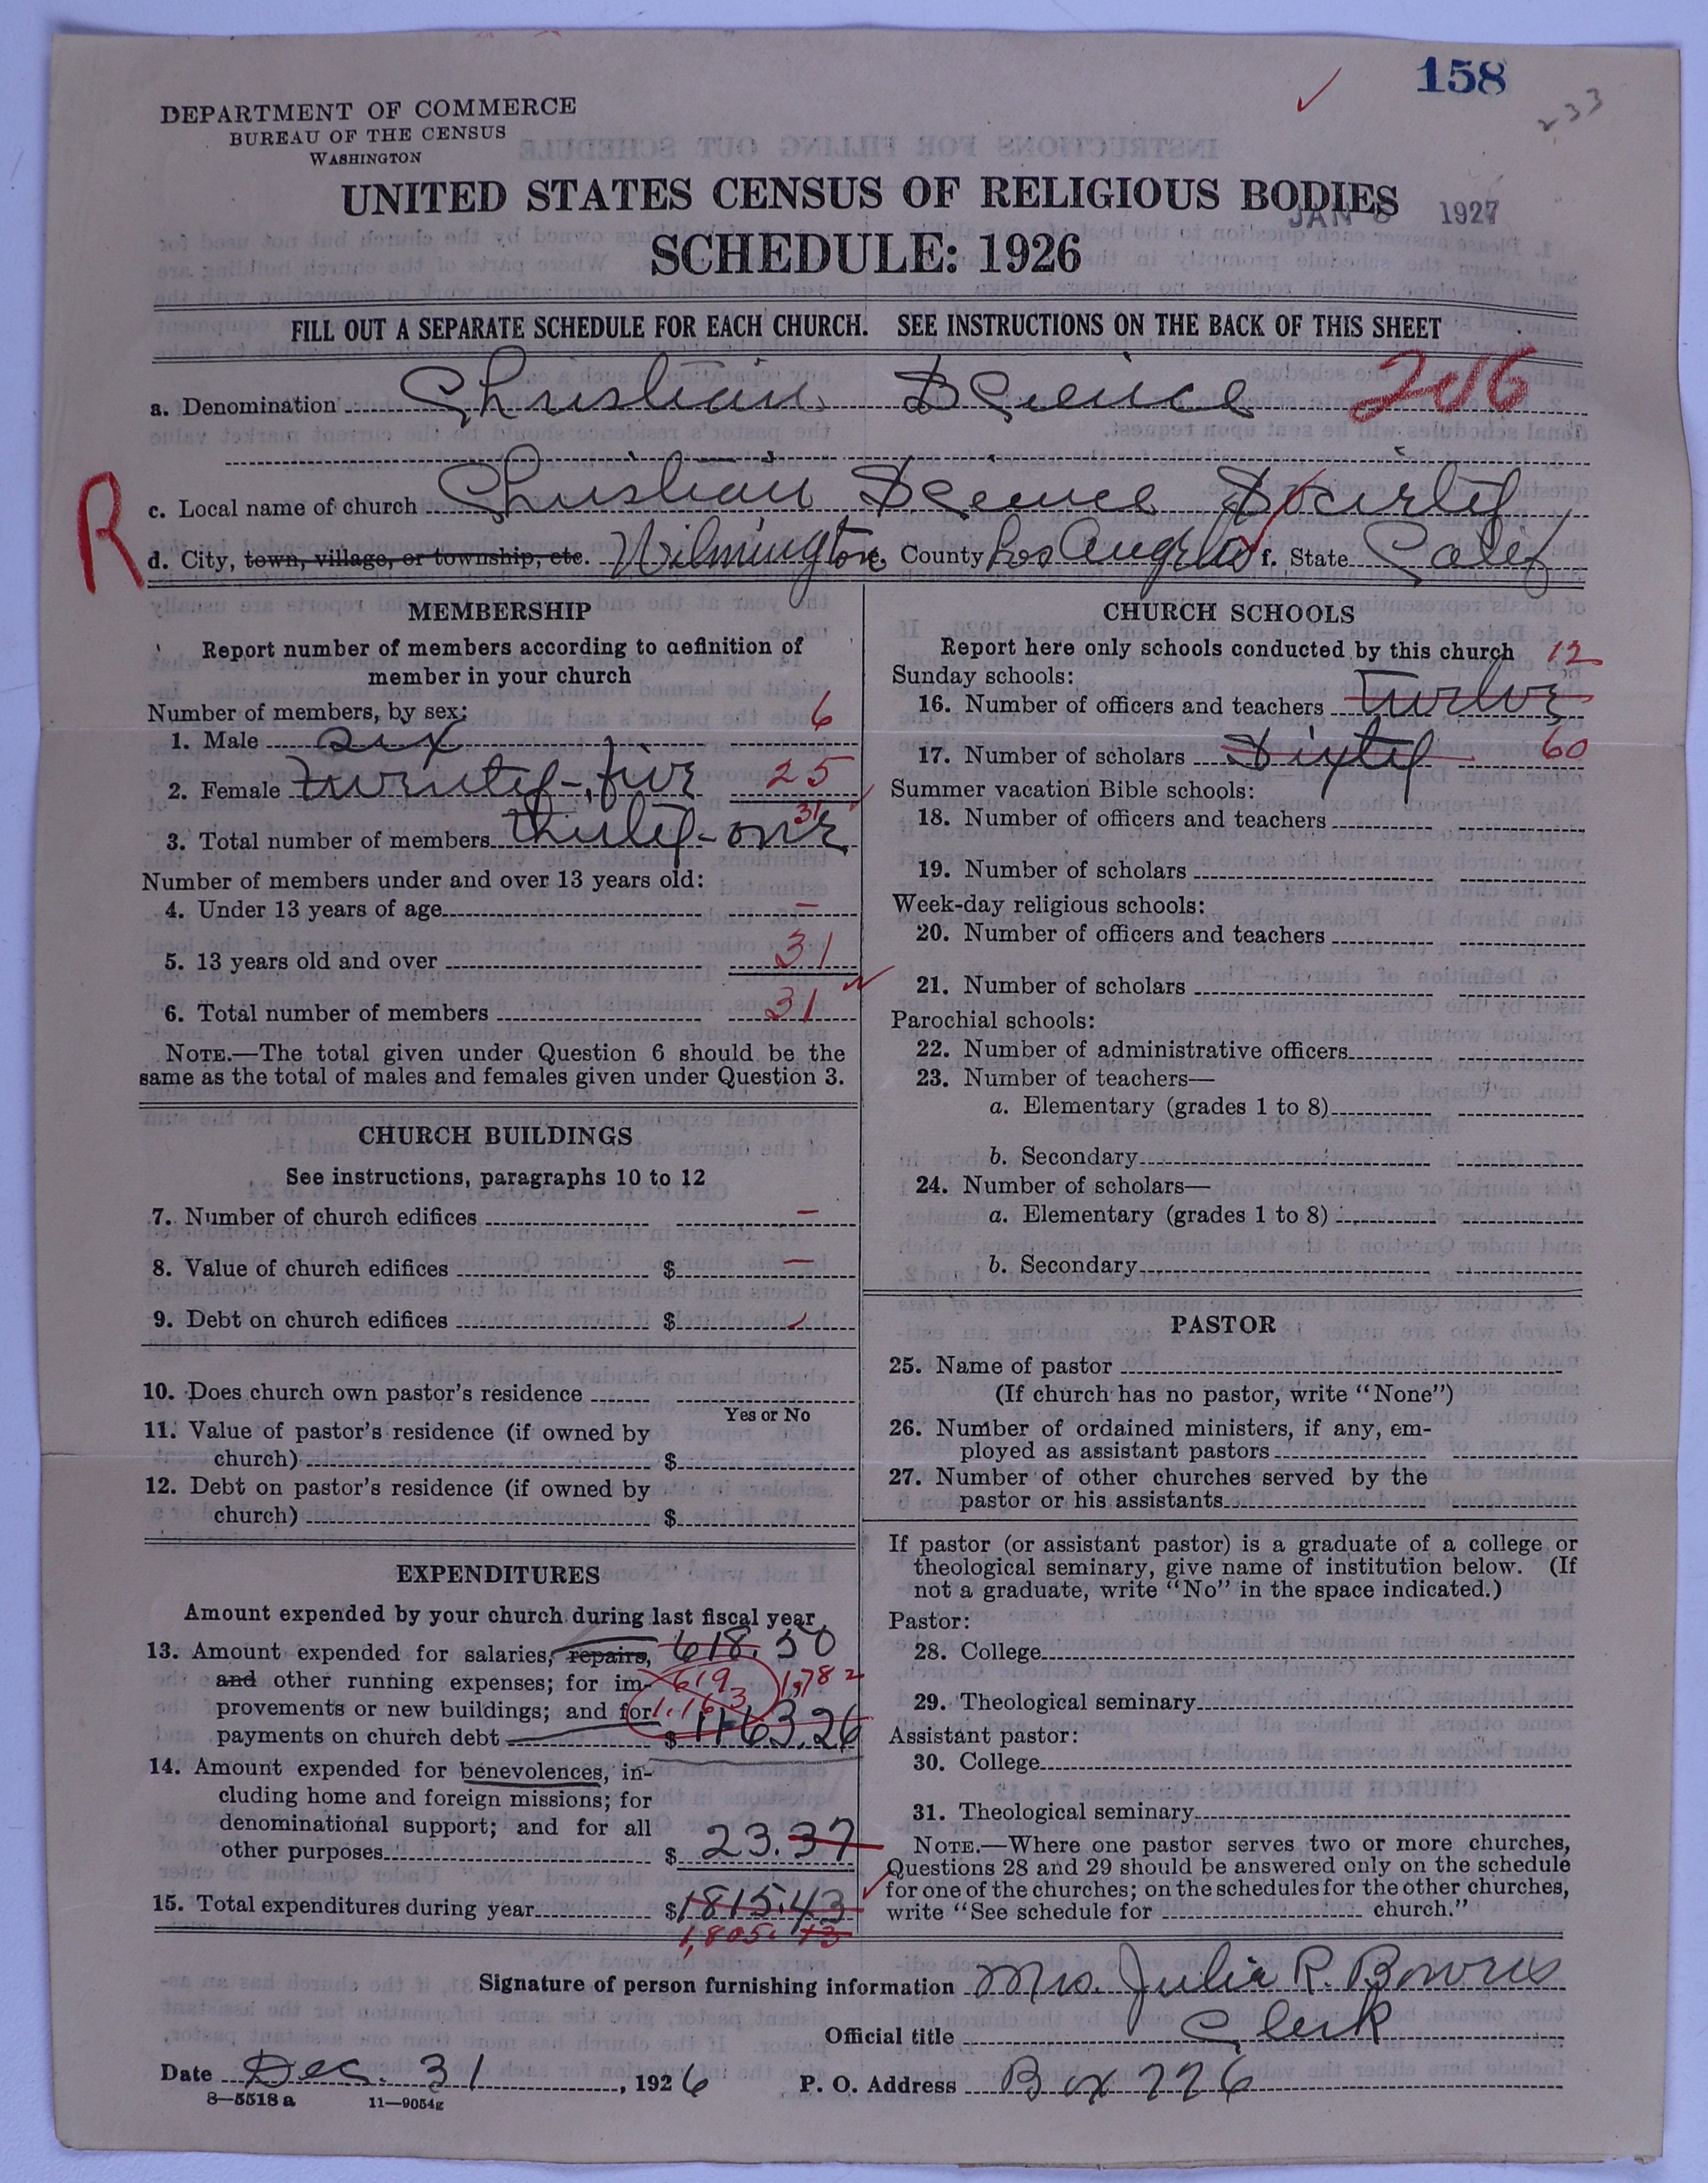 158
233
DEPARTMENT OF COMMERCE
BUREAU OF THE CENSUS
WASHINGTON
UNITED STATES CENSUS OF RELIGIOUS BODIES
JAN 1927
SCHEDULE: 1926
FILL OUT A SEPARATE SCHEDULE FOR EACH CHURCH. SEE INSTRUCTIONS ON THE BACK OF THIS SHEET
a. Denomination Christian Science 206
R
c. Local name of church Christian Science Society
d. City, town, village, or township, etc. Wilmington County Los Angeles f. State Calif
MEMBERSHIP
Report number of members according to definition of
member in your church
Number of members, by sex:
1. Male six 6
2. Female twenty-five 25
3. Total number of members thirty-one 31
Number of members under and over 13 years old:
4. Under 13 years of age –
5. 13 years old and over 31
6. Total number of members 31
NOTE.—The total given under Question 6 should be the
same as the total of males and females given under Question 3.
CHURCH BUILDINGS
See instructions, paragraphs 10 to 12
7. Number of church edifices –
8. Value of church edifices $ –
9. Debt on church edifices $
10. Does church own pastor's residence
Yes or No
11. Value of pastor's residence (if owned by
church) $
12. Debt on pastor's residence (if owned by
church) $
EXPENDITURES
Amount expended by your church during last fiscal year
13. Amount expended for salaries, repairs, 618.50
and other running expenses; for im- 619 1,782
provements or new buildings; and for 1,163
payments on church debt $ 1163.26
14. Amount expended for benevolences, in-
cluding home and foreign missions; for
denominational support; and for all
other purposes $ 23.37
15. Total expenditures during year $1815.43
1,805.13
CHURCH SCHOOLS
Report here only schools conducted by this church
Sunday schools: 12
16. Number of officers and teachers Twelve
17. Number of scholars Sixty 60
Summer vacation Bible schools:
18. Number of officers and teachers
19. Number of scholars
Week-day religious schools:
20. Number of officers and teachers
21. Number of scholars
Parochial schools:
22. Number of administrative officers
23. Number of teachers—
a. Elementary (grades 1 to 8)
b. Secondary
24. Number of scholars—
a. Elementary (grades 1 to 8)
b. Secondary
PASTOR
25. Name of pastor
(If church has no pastor, write "None")
26. Number of ordained ministers, if any, em-
ployed as assistant pastors
27. Number of other churches served by the
pastor or his assistants
If pastor (or assistant pastor) is a graduate of a college or
theological seminary, give name of institution below. (If
not a graduate, write "No" in the space indicated.)
Pastor:
28. College
29. Theological seminary
Assistant pastor:
30. College
31. Theological seminary
NOTE.—Where one pastor serves two or more churches,
Questions 28 and 29 should be answered only on the schedule
for one of the churches; on the schedules for the other churches,
write "See schedule for church."
Signature of person furnishing information Mrs. Julia R. Bowers
Official title Clerk
Date Dec. 31, 1926 P. O. Address Box 226
8—5518 a 11—9054g